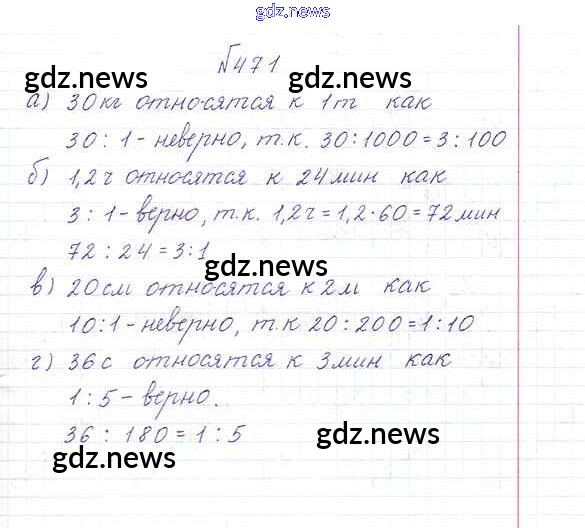 gdz.news
№471
gdz.news gdz.news
а) 30кг относятся к 1т как
30 : 1 - неверно, т.к. 30:1000=3:100
б) 1,2ч относятся к 24мин как
3 : 1 - верно, т.к. 1,2ч = 1,2·60=72мин
72 : 24 = 3:1
gdz.news
в) 20см относятся к 2м как
10:1 - неверно, т.к 20:200=1:10
г) 36с относятся к 3мин как
1 : 5 - верно.
36 : 180 = 1 : 5
gdz.news
gdz.news